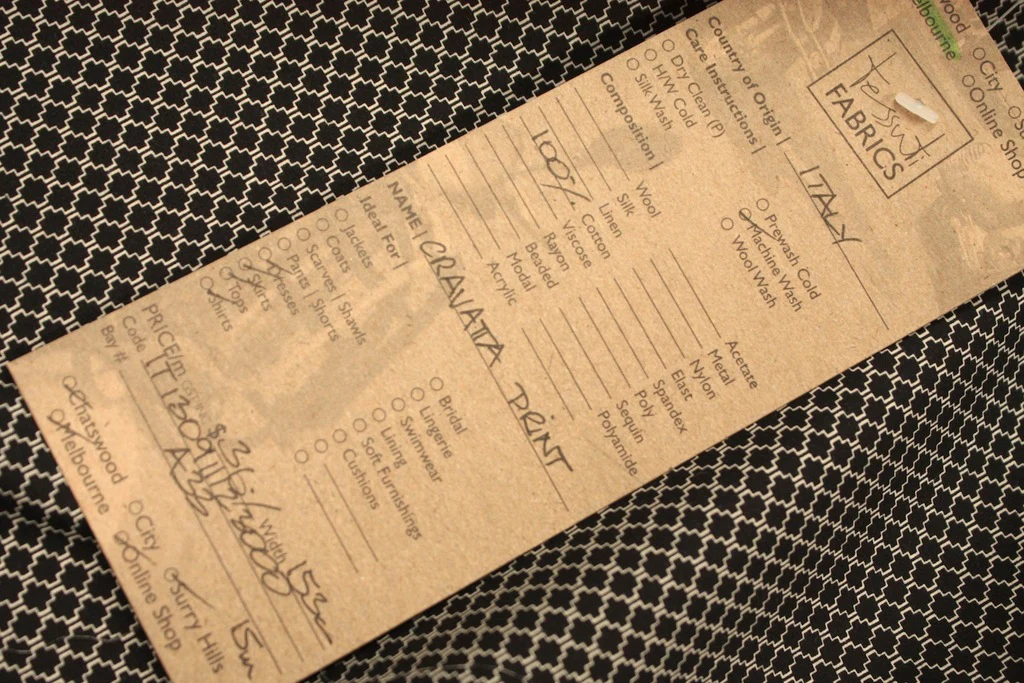 Tessuti
FABRICS
elbourne
City
Online Shop
Country of Origin | ITALY
Care Instructions |
Dry Clean (P)
H/W Cold
Silk Wash
Prewash Cold
Machine Wash
Wool Wash
Composition |
Wool
Silk
Linen
100% Cotton
Viscose
Rayon
Beaded
Modal
Acrylic
Acetate
Metal
Nylon
Elast
Spandex
Poly
Sequin
Polyamide
NAME | CRAVATTA PRINT
Ideal For |
Jackets
Coats
Scarves | Shawls
Pants | Shorts
Dresses
Skirts
Tops
Shirts
Bridal
Lingerie
Swimwear
Lining
Soft Furnishings
Cushions
PRICE/m
Width 153c
Code
Bay #
15m
Chatswood
City
Surry Hills
Melbourne
Online Shop